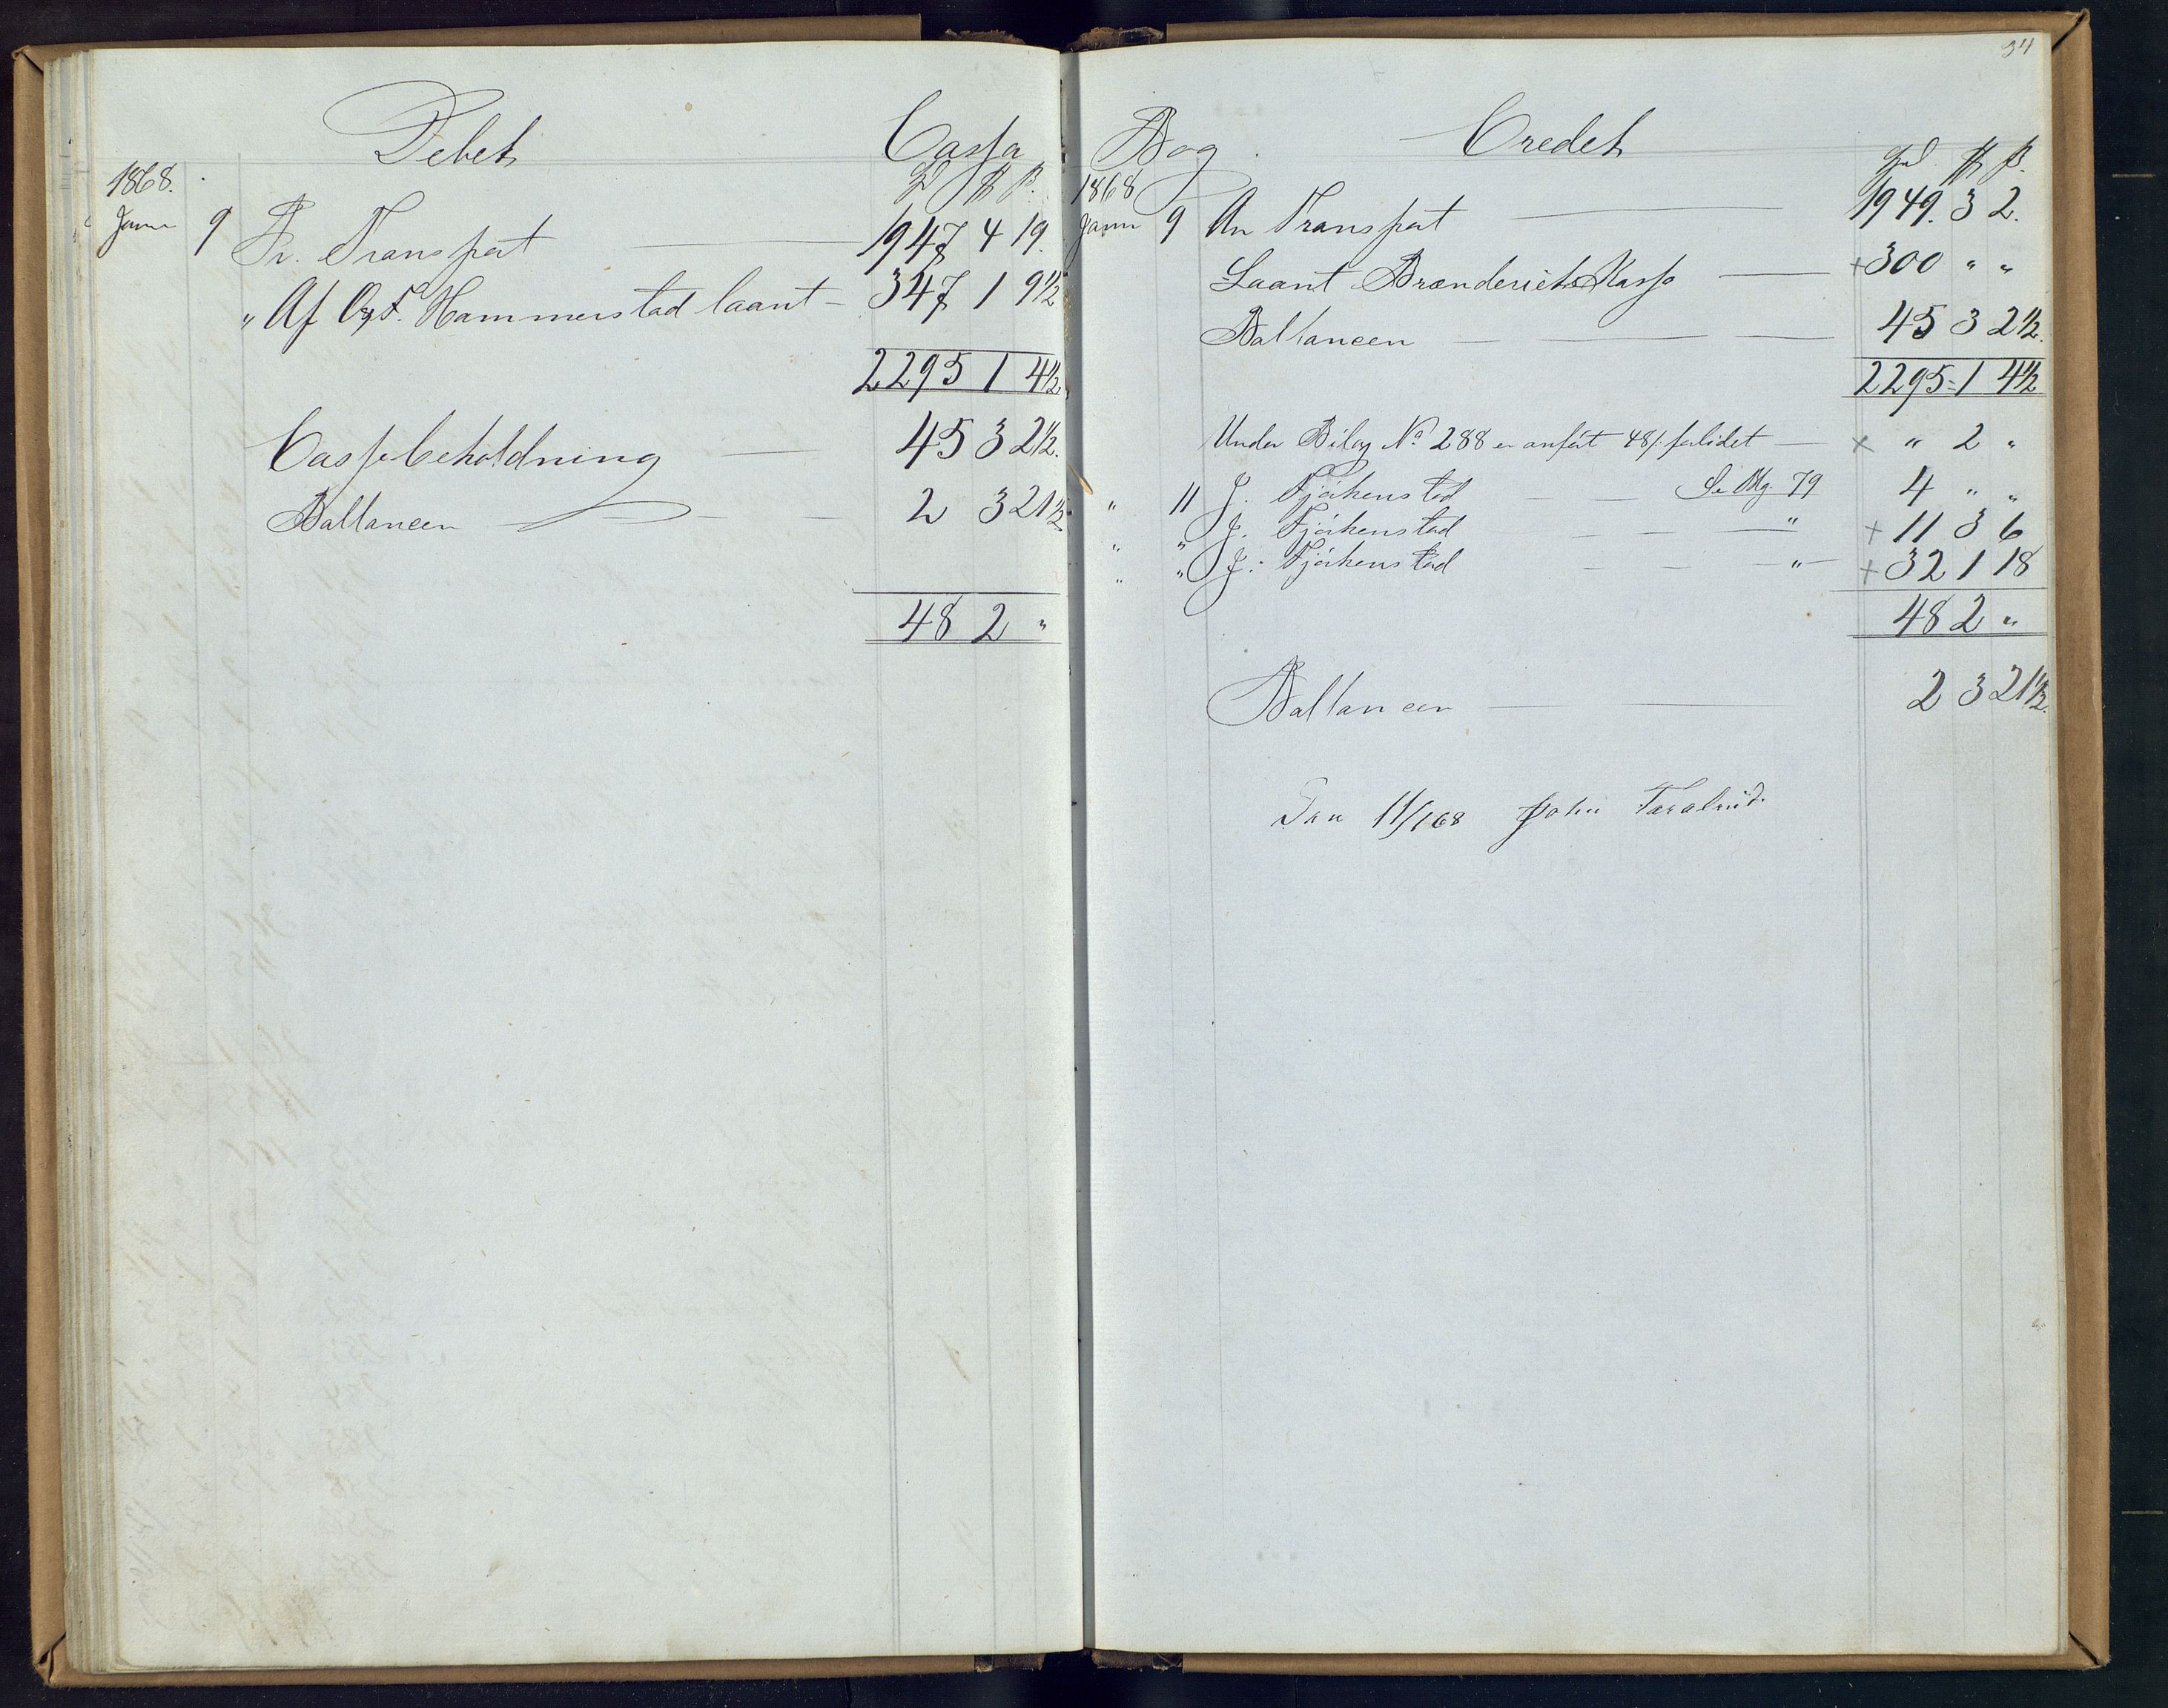 Debet Cassa
1868. D ß
Janu 9 Pr. Transport 1947 4 19.
" Af O. F. Hammerstad laant 347 1 9½
2295 1 4½
Cassebeholdning 45 3 2½.
Ballancen 2 3 21½
48 2 "
34
Bog. Credet
1868 Spd ß
Janu 9 An Transport 1949. 3 2.
Laant Brænderiets Kasse +300 " "
Ballancen 45 3 2½.
2295 1 4½
Under Bilag No 288 er anført 48 ß forlidet × " 2 "
" 11 J. Fjørkenstad 79 4 " "
" " J. Fjørkenstad " + 11 3 6
" " J. Fjørkenstad " + 32 1 18
48 2 "
Ballancen 2 3 21½.
11/1 68 John